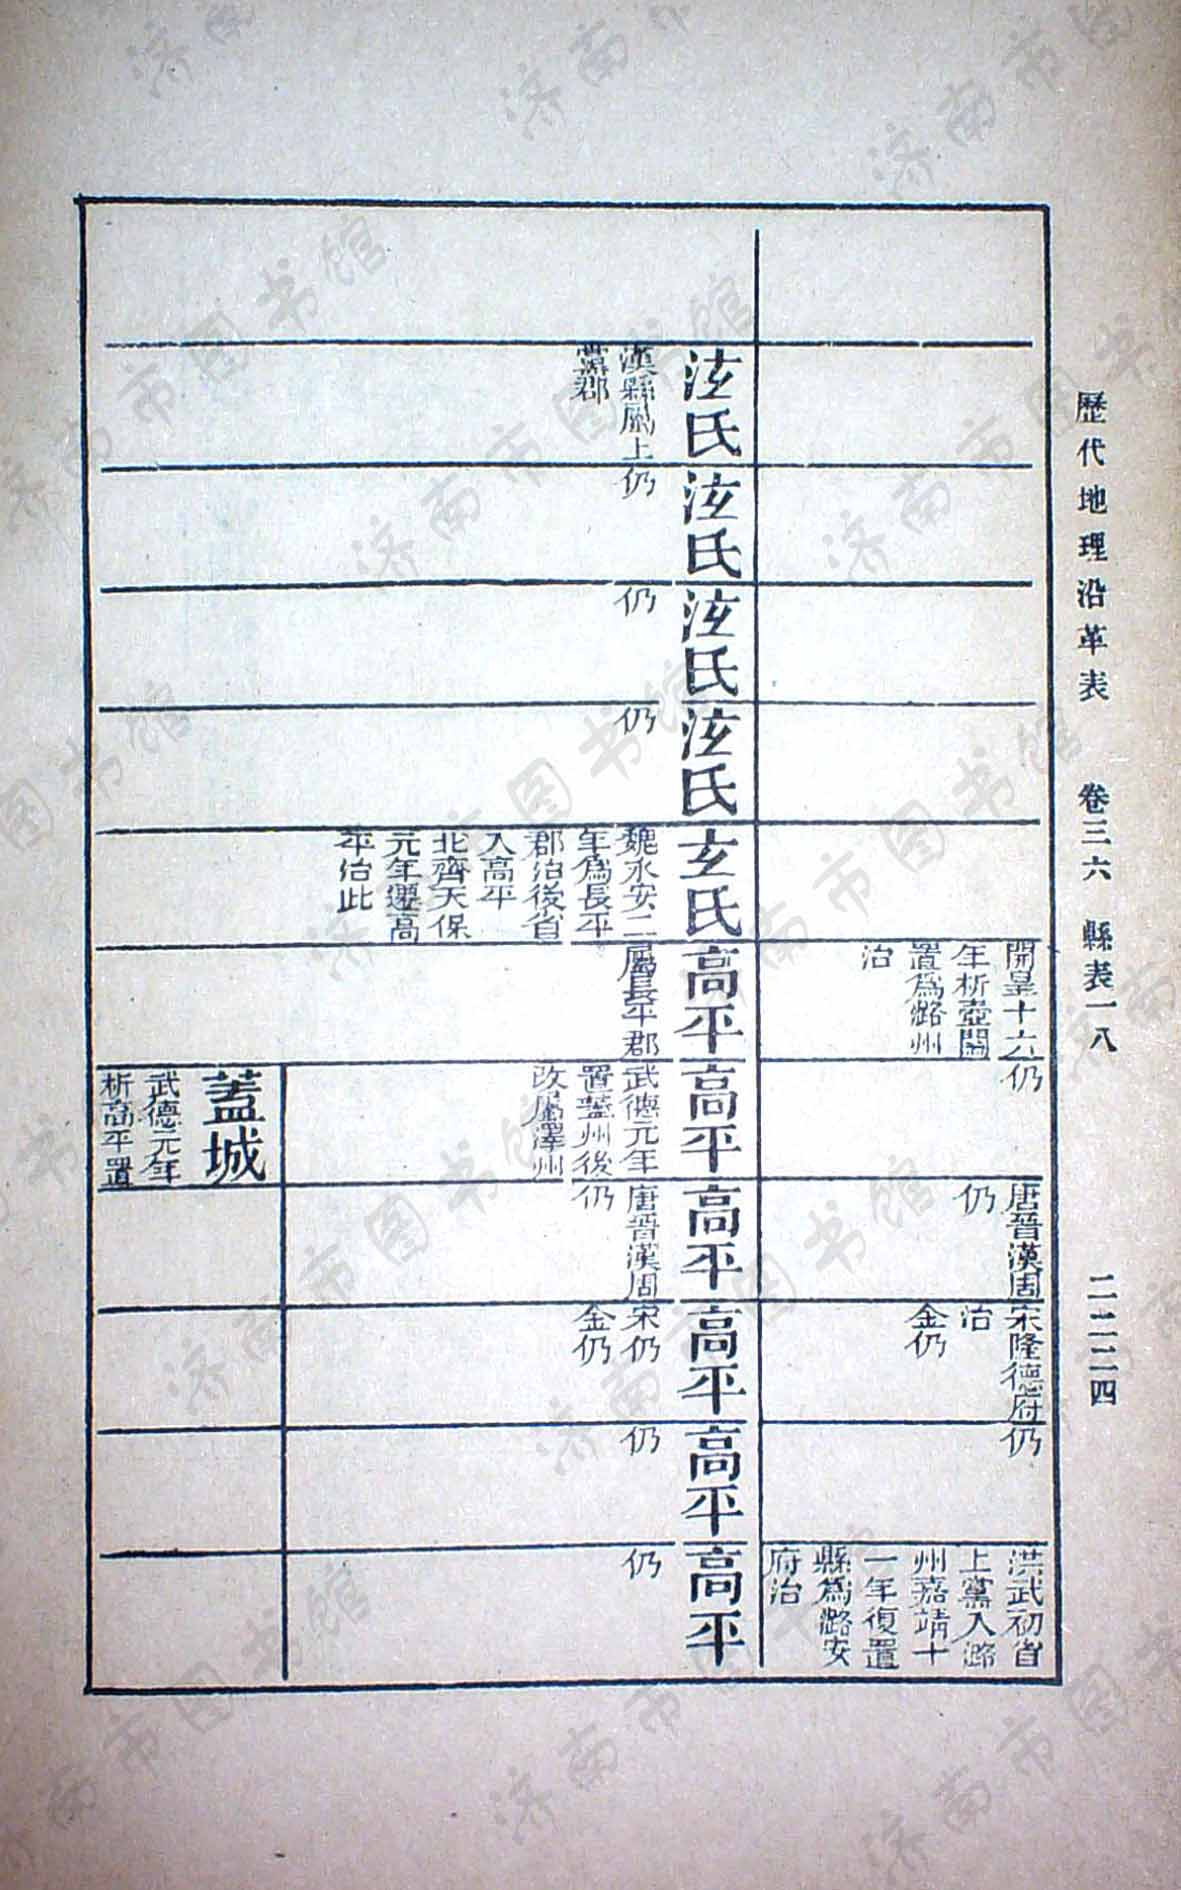 歷代地理沿革表　卷三六　縣表一八　二二二四
開皇十六
年析壺關
置爲潞州
治
仍
唐晉漢周
仍
宋隆德府
治
金仍
仍
洪武初省
上黨入潞
州嘉靖十
一年復置
縣爲潞安
府治
泫氏
漢縣屬上
黨郡
泫氏
仍
泫氏
仍
泫氏
仍
玄氏
魏永安二
年爲長平
郡治後省
入高平
北齊天保
元年遷高
平治此
高平
屬長平郡
高平
武德元年
置蓋州後
改屬澤州
高平
唐晉漢周
仍
高平
宋仍
金仍
高平
仍
高平
仍
蓋城
武德元年
析高平置
济南市图书馆